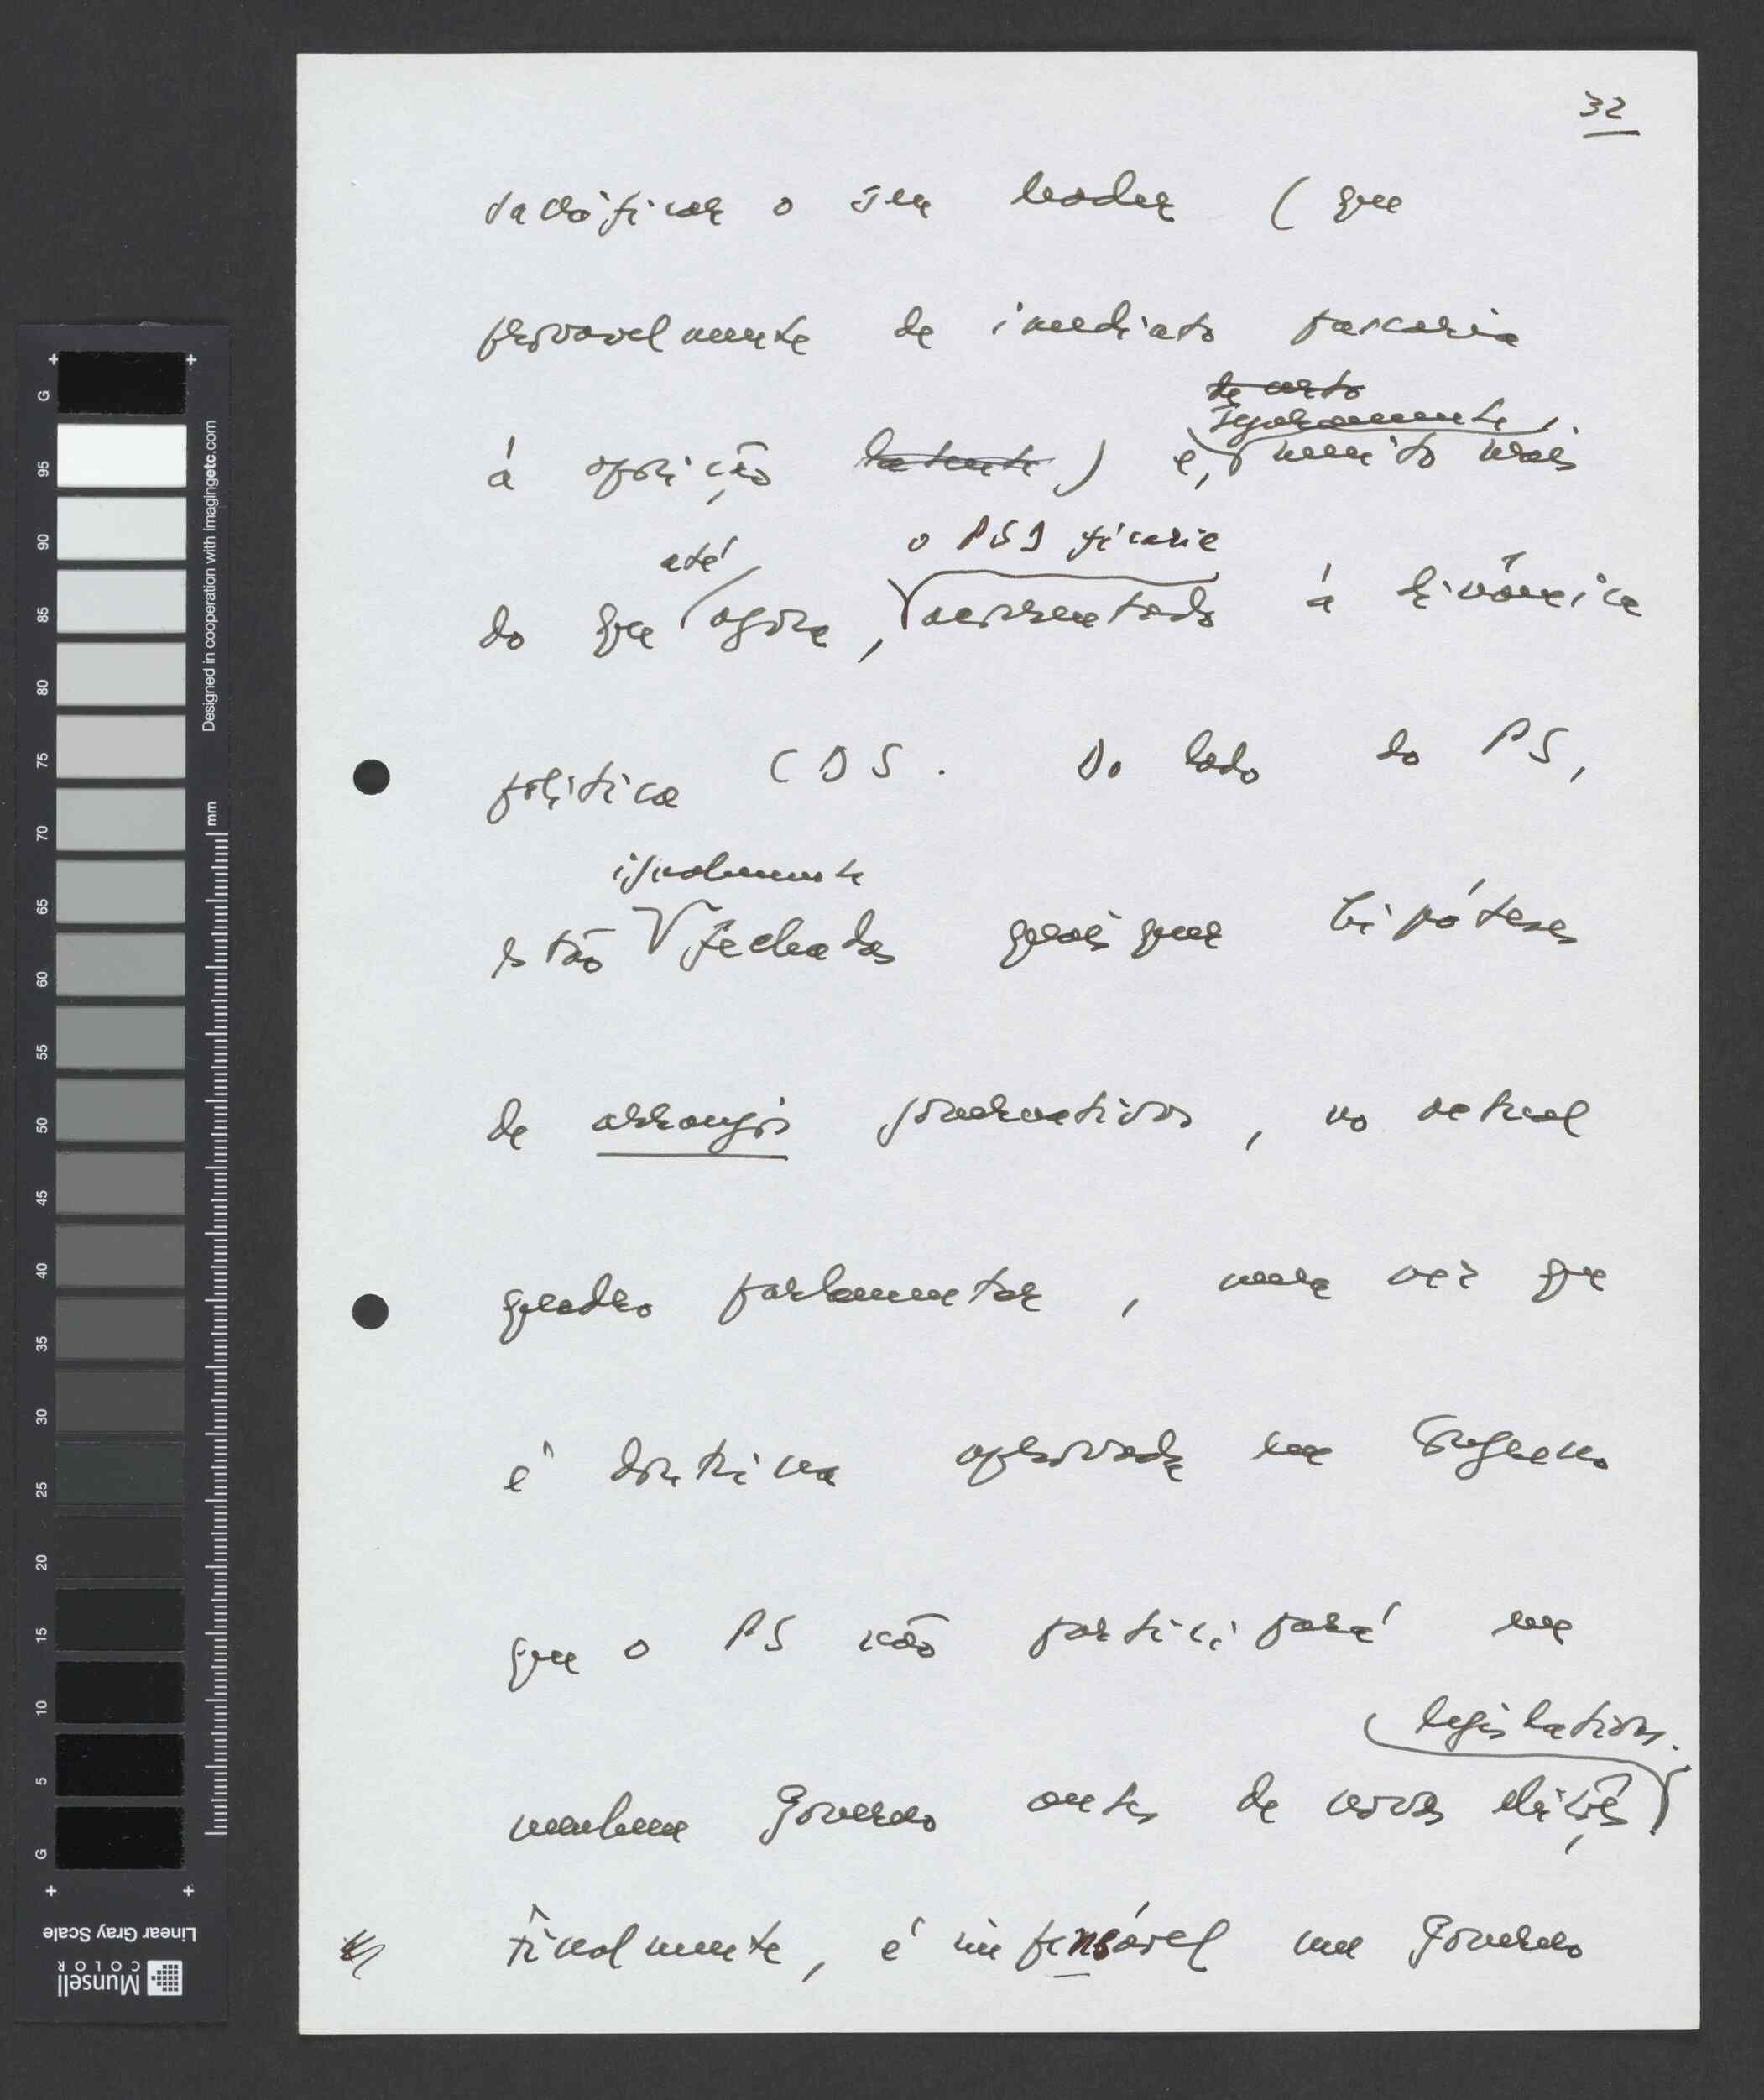 32
sacrificar o seu leader ( que
provavelmente de imediato passaria
de certo
seguramente,
à oposição latente ) e, muito mais
até o PSD ficaria
do que agora, acorrentado à dinâmica
política CDS. Do lado do PS,
igualmente
estão fechadas quaisquer hipóteses
de arranjos governativos, no actual
quadro parlamentar, uma vez que
é doutrina aprovada em Congresso
que o PS não participará em
legislativas.
nenhum Governo antes de novas eleições
Finalmente, é impensável um Governo
G
95
90
85
80
75
70
65
60
55
50
45
40
35
30
25
20
15
10
5
G
mm
Designed in cooperation with imagingetc.com
Linear Gray Scale
Munsell
COLOR